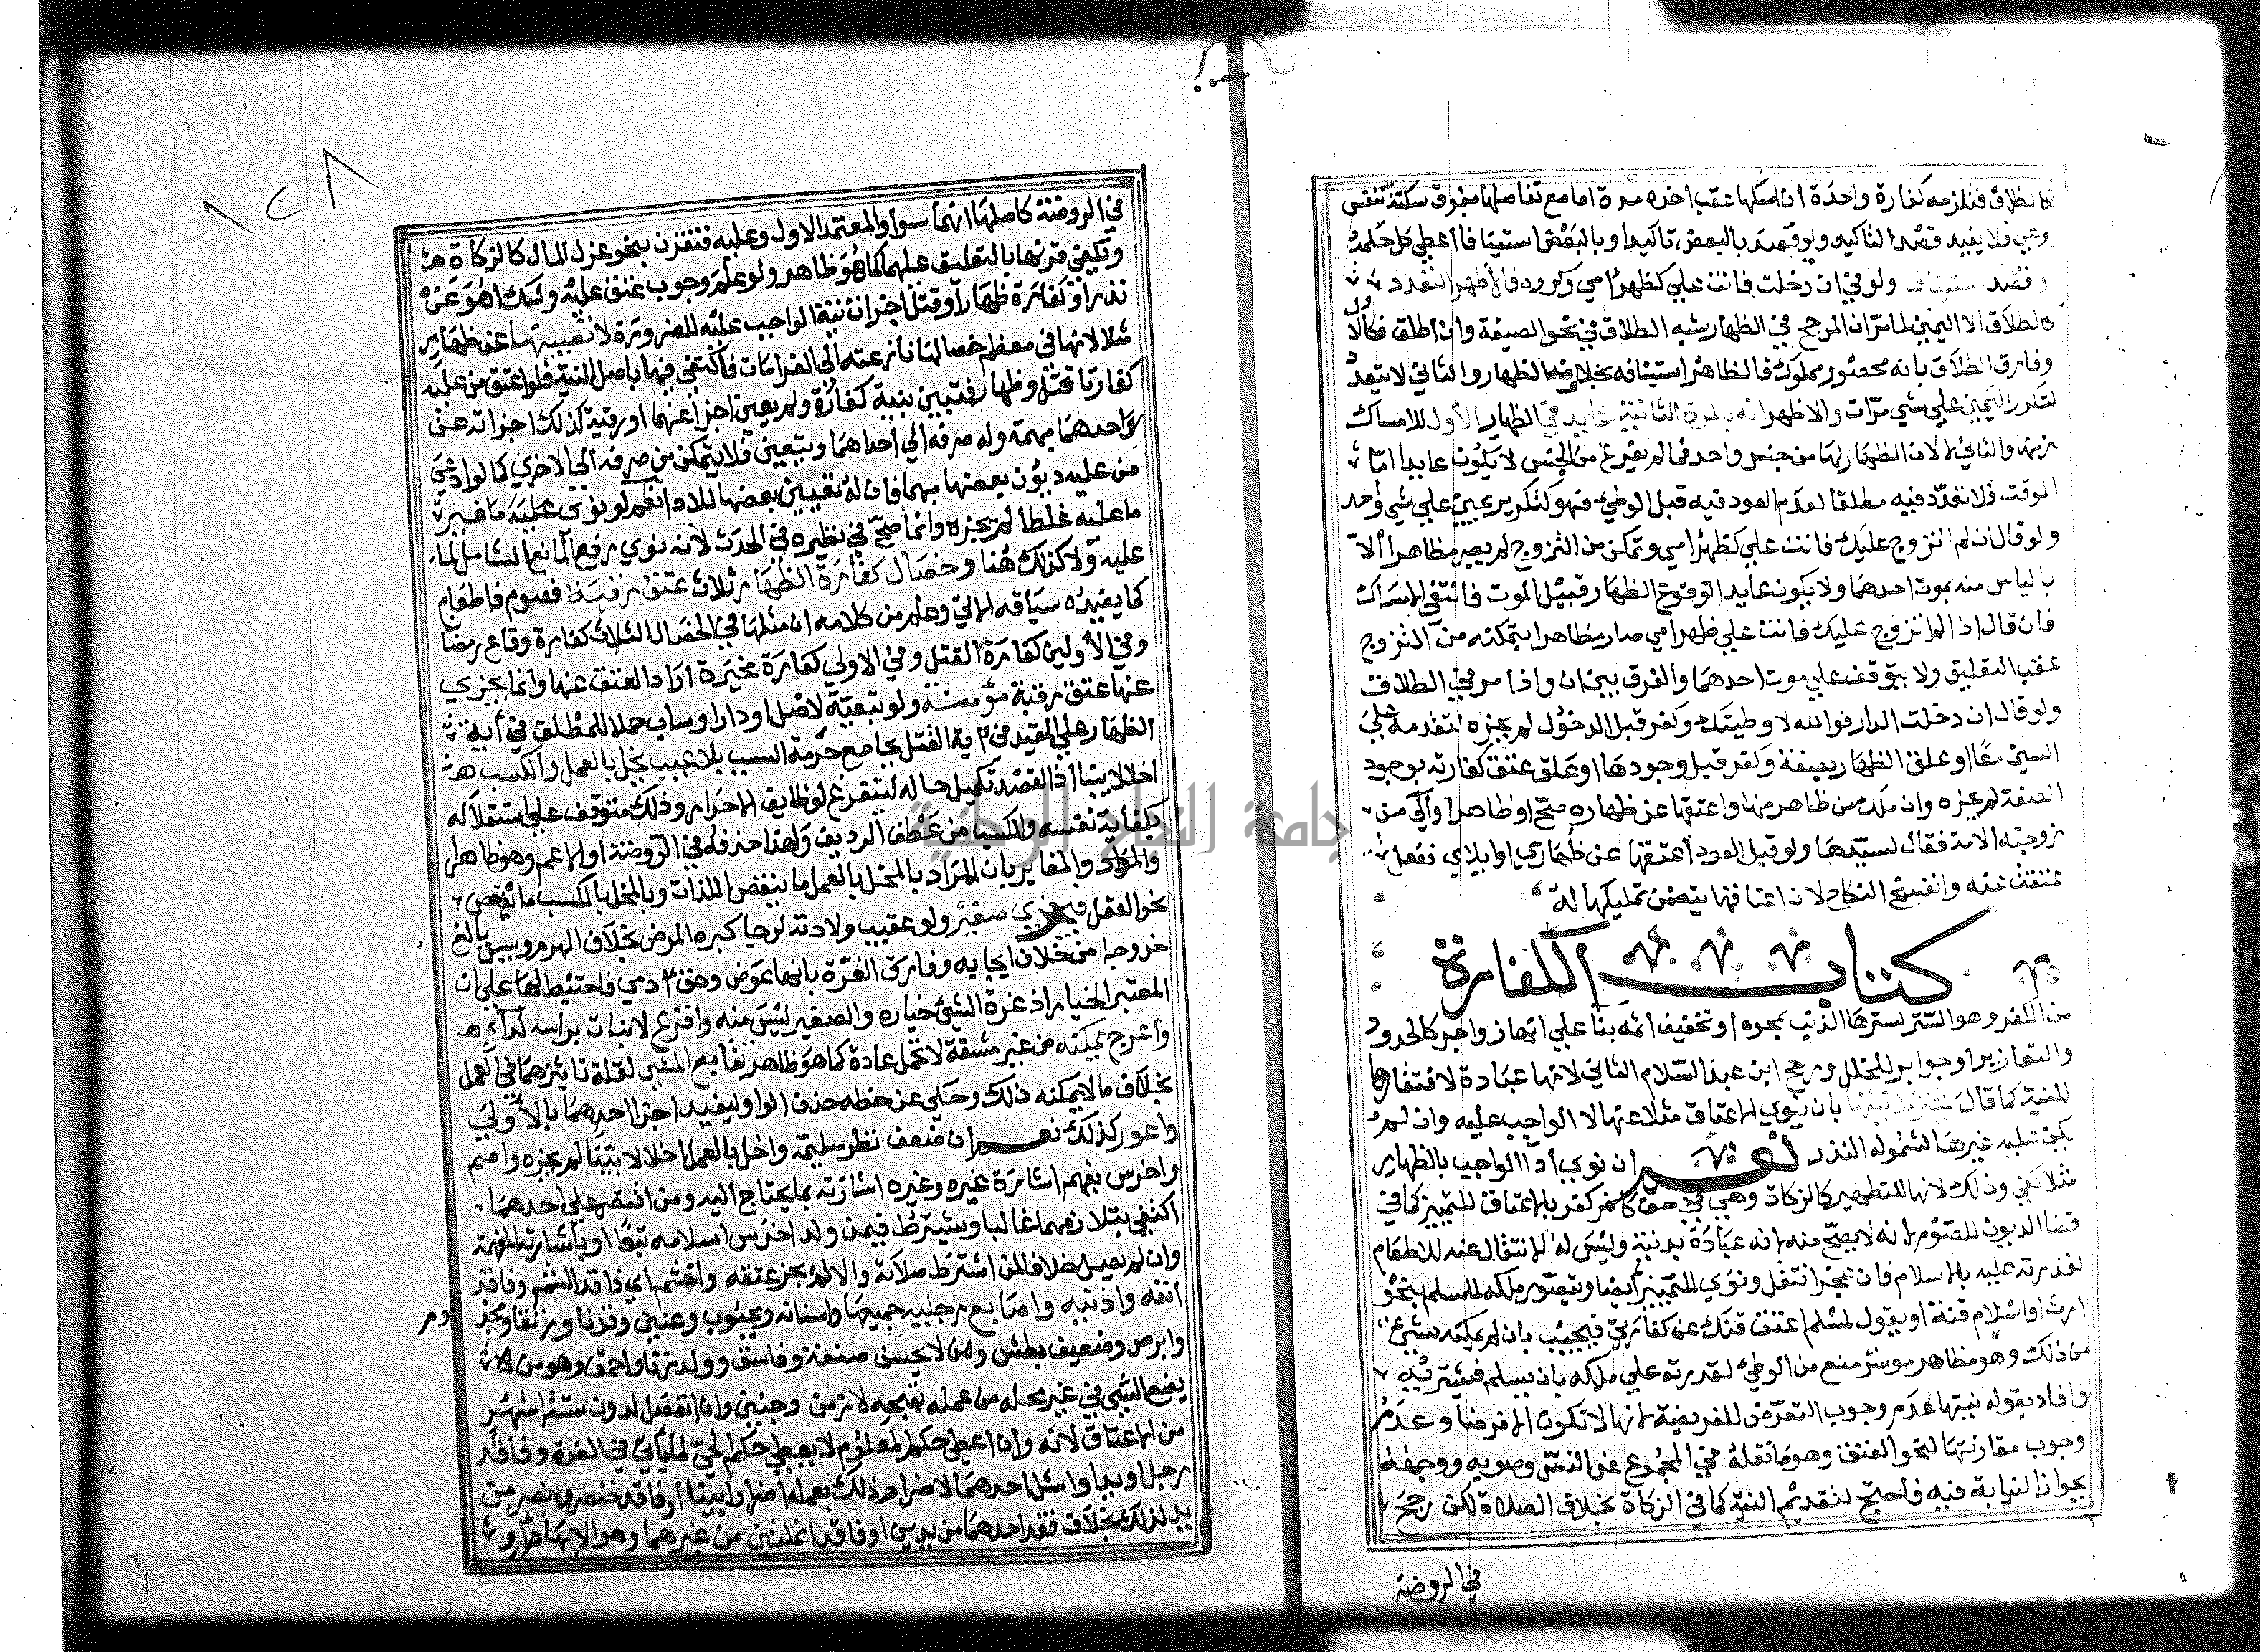 كالطلاق فتلزمه كفارة واحدة ان امسكها عقب اخره مدة اما مع تفاصلها بفوق سكتة تنفس
وعي فلا يفيد قصد التاكيد ولو قصد بالبعض تاكيدا وبالبعض استينافا اعطي كل حكمه
وقصد استيناف ولو في ان دخلت فانت علي كظهر امي وكرره فالاظهر التعدد
كالطلاق لا اليمين لما مر ان المرجح في الظهار شبه الطلاق في نحو الصيغة وان اطلق فكالاول
وفارق الطلاق بانه محصور مملوك فالظاهر استينافه بخلاف الظهار والثاني لا يتعدد
لتكرر اليمين علي شي مرات والاظهر انه بالمرة الثانية عايد في الظهار الاول للامساك
زمنها والثاني لا لان الظهار لها من جنس واحد فما لم يفرغ من الجنس لا يكون عايدا اما
الموقت فلا تعدد فيه مطلقا لعدم العود فيه قبل الوطئ فهو كتكرير يمين علي شي واحد
ولو قال ان لم اتزوج عليك فانت علي كظهر امي وتمكن من التزوج لم يصر مظاهرا الا
بالياس منه بموت احدهما ولا يكون عايدا لوقوع الظهار قبيل الموت فانتفي الامساك
فان قال اذا لم اتزوج عليك فانت علي ظهر امي صار مظاهرا بتمكنه من التزوج
عقب التعليق ولا يتوقف علي موت احدهما والفرق بين ان واذا مر في الطلاق
ولو قال ان دخلت الدار فوالله لا وطيتك وكفر قبل الدخول لم يجزه لتقدمه علي
السببين معا او علق الظهار بصفة وكفر قبل وجودها او علق عتق كفارته بوجود
الصفة لم يجزه وان ملك من ظاهر منها واعتقها عن ظهاره صح او ظاهر او آلي من
زوجته الامة فقال لسيدها ولو قبل العود اعتقها عن ظهاري او ايلاي ففعل
عتقت عنه وانفسخ النكاح لان اعتاقها يتضمن تمليكها له
كتاب الكفارة
من الكفر وهو الستر لسترها الذنب بمحوه او تخفيف اثمه بنا علي انها زواجر كالحدود
والتعازير او جوابر للخلل ورجح ابن عبد السلام الثاني لانها عبادة لافتقارها
للنية كما قال يشترط نيتها بان ينوي الاعتاق مثلا عنها لا الواجب عليه وان لم
يكن عليه غيرها لشموله النذر نعم ان نوي ادا الواجب بالظهار
مثلا كفي وذلك لانها للتطهير كالزكاة وهي في حق كافر كفر بالاعتاق للتمييز كما في
قضا الديون لا الصوم لانه لا يصح منه لانه عبادة بدنية وليس له الانتقال عنه للاطعام
لقدرته عليه بالاسلام فان عجز انتقل ونوي للتمييز ايضا ويتصور ملكه للمسلم بنحو
ارث او اسلام قنه او يقول لمسلم اعتق قنك عن كفارتي فيجيب فان لم يمكنه شيئ
من ذلك وهو مظاهر موسر منع من الوطئ لقدرته علي ملكه بان يسلم فيشتريه
وافاد بقوله نيتها عدم وجوب التعرض للفريضة لانها لا تكون الا فرضا وعدم
وجوب مقارنتها لنحو العتق وهو ما نقله في المجموع عن النص وصوبه ووجهه
بجواز النيابة فيه فاحتج لتقديم النية كما في الزكاة بخلاف الصلاة لكن رجح
في الروضة
٢٠٨
في الروضة كاصلها انهما سوا والمعتمد الاول وعليه فتقترن بنحو عزل المال كالزكاة
وتكفي قرنها بالتعليق عليهما كما هو ظاهر ولو علم وجوب عتق عليه وشك اهو عن
نذر او كفارة ظهار او قتل اجزاه نية الواجب عليه للضرورة لا تعيينها عن ظهار
مثلا لانها في معظم خصالها نازعته الي الغرامات فاكتفي فيها باصل النية فلو اعتق من عليه
كفارتا قتل وظهار رقبتين بنية كفارة ولم يعين اجزا عنهما او رقبة كذلك اجزاته عن
احدهما مبهمة وله صرفه الي احداهما ويتعين فلا يتمكن من صرفه الي الاخري كما لو ادي
من عليه ديون بعضها مبهما فان له تعيين بعضها للادا نعم لو نوي غير
ما عليه غلطا لم يجزه وانما صح في نظيره في الحدث لانه نوي رفع المانع الشامل لما
عليه ولا كذلك هنا وخصال كفارة الظهار ثلاث عتق رقبة فصوم فاطعام
كما يفيده سياقه الاتي وعلم من كلامه ان مثلها في الخصال الثلاث كفارة وقاع رمضان
وفي الاولين كفارة القتل وفي الاولي كفارة مخيرة اراد العتق عنها وانما يجزي
عنها عتق رقبة مؤمنة ولو تبعية لاصل او دار او ساب حملا للمطلق في اية
الظهار علي المقيد في اية القتل بجامع حرمة السبب بلا عيب يخل بالعمل والكسب
اخلالا بينا اذ القصد تكميل حاله ليتفرغ لوظايف الاحرار وذلك متوقف علي استقلاله
بكفاية نفسه والكسب من عطف الرديف ولهذا حذفه في الروضة او الاعم وهو ظاهر
والمؤكد والمغاير بان المراد بالمخل بالعمل ما ينقص الذات وبالمخل بالكسب ما ينقص
نحو العقل فيجزي صغير ولو عقيب ولادته لرجا كبره كالمرض بخلاف الهرم وبيس بالغ
خروجا من خلاف ايجابه وفارق الغرة بانها عوض وحق ادمي فاحتيط لها علي ان
المعتبر الخيار اذ غرة الشئ خياره والصغير ليس منه واقرع لا نبات براسه لداء
واعرج يمكنه من غير مشقة لا تحتمل عادة كما هو ظاهر تتابع المشي لقلة تاثيرهما في العمل
بخلاف ما لا يمكنه ذلك وحكي عن خطه حذف الواو ليفيد اجزا احدهما بالاولي
واعور كذلك نعم ان ضعف نظر سليمة واخل بالعمل اخلالا بينا لم يجزه واصم
واخرس يفهم اشارة غيره وغيره اشارته بما يحتاج اليه ومن اقتصر علي احدهما
اكتفي بتلازمهما غالبا ويشترط فيمن ولد اخرس اسلامه تبعا او باشارته المفهمة
وان لم يصل خلافا لمن اشترط صلاته والا لم يجز عتقه واخشم اي فاقد الشم وفاقد
انفه واذنيه واصابع رجليه جميعها واسنانه ومجبوب وعنين وقرنا ورتقا ومجذوم
وابرص وضعيف بطش ومن لا يحسن صنعة وفاسق وولد زنا واحمق وهو من
يضع الشي في غير محله مع علمه بقبحه لا زمن وجنين وان انفصل لدون ستة اشهر
من الاعتاق لانه وان اعطي حكم المعلوم لا يعطي حكم الحي لما ياتي في الغرة وفاقد
رجل او يد او اشل احدهما لاضرار ذلك بعمله اضرارا بينا او فاقد خنصر وبنصر من
يد لذلك بخلاف فقد احدهما من يدين او فاقد انملتين من غيرهما وهو الابهام او
جامعة النجاح الوطنية